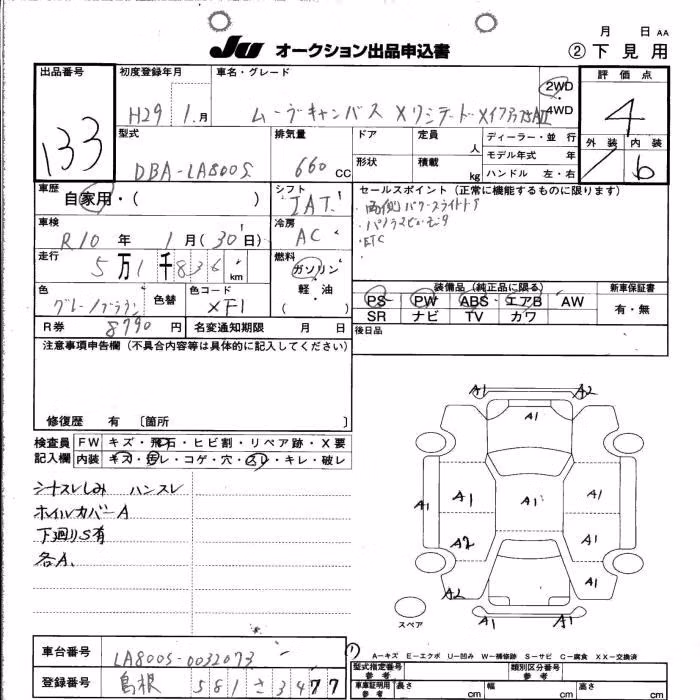 月 日 AA
JU オークション出品申込書 ② 下見用
出品番号 133
初度登録年月 H29 1.月
車名・グレード ムーヴキャンバス X
2WD
4WD
評価点 4
外装 内装 b
型式 DBA-LA800S
排気量 660 CC
ドア 定員 人
形状 積載 kg
ディーラー・並 行
モデル年式 年
ハンドル 左・右
車歴 自家用・( )
シフト IAT
セールスポイント (正常に機能するものに限ります)
・両側パワースライドドア
・パノラマモニタ
・ETC
車検 R10 年 1 月 (30日)
冷房 AC
走行 5万1千836 km
燃料 ガソリン
軽・油
( )
色 グレー/ブラウン 色替
色コード XF1
装備品 (純正品に限る)
新車保証書
PS PW ABS エアB AW
有・無
SR ナビ TV カワ
R券 8790 円
名変通知期限 月 日
後日品
注意事項申告欄 (不具合内容等は具体的に記入してください)
修復歴 有 〔箇所 〕
検査員 FW キズ・飛石・ヒビ割・リペア跡・X要
記入欄 内装 キズ・汚レ・コゲ・穴・スレ・キレ・破レ
シートスレしみ ハンスレ
ホイルカバーA
下廻りS有
各A、
A1 A2
A1
A1 A1 A1 A1
A2 A1
A2 A1
A1 A1
スペア
A-キズ E-エクボ U-凹み W-補修跡 S-サビ C-腐食 XX-交換済
車台番号 LA800S-0032073
登録番号 島根 581 さ 3477
型式指定番号 参考
類別区分番号
車庫証明用 参考 長さ cm 幅 cm 高さ cm